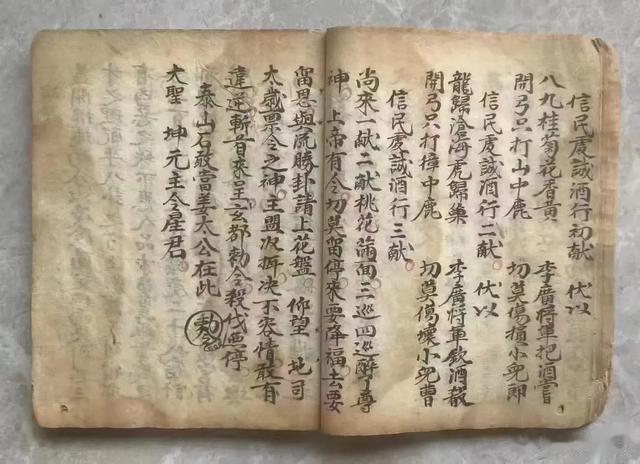 信民虔誠酒行初献　伏以
八九桂菊花香黄　李廣将軍把酒嘗
開弓只打山中鹿　切莫傷損小兒郎
信民虔誠酒行二献　伏以
龍歸滄海虎歸巢　李廣将軍飲酒散
開弓只打獐中鹿　切莫傷壞小兒曹
信民虔誠酒行三献
尚來一献二献桃花滿面三巡四巡醉了尊
神　上帝有令切莫留停來要降福去要
留恩與 勝卦請上花盤　仰望　地司
太歲票令之神主盟次 决不容情敢有
違逆斬首來呈玄都勅令殺伐 停
泰山石敢當姜太公在此
大聖坤元主令星君
勅令